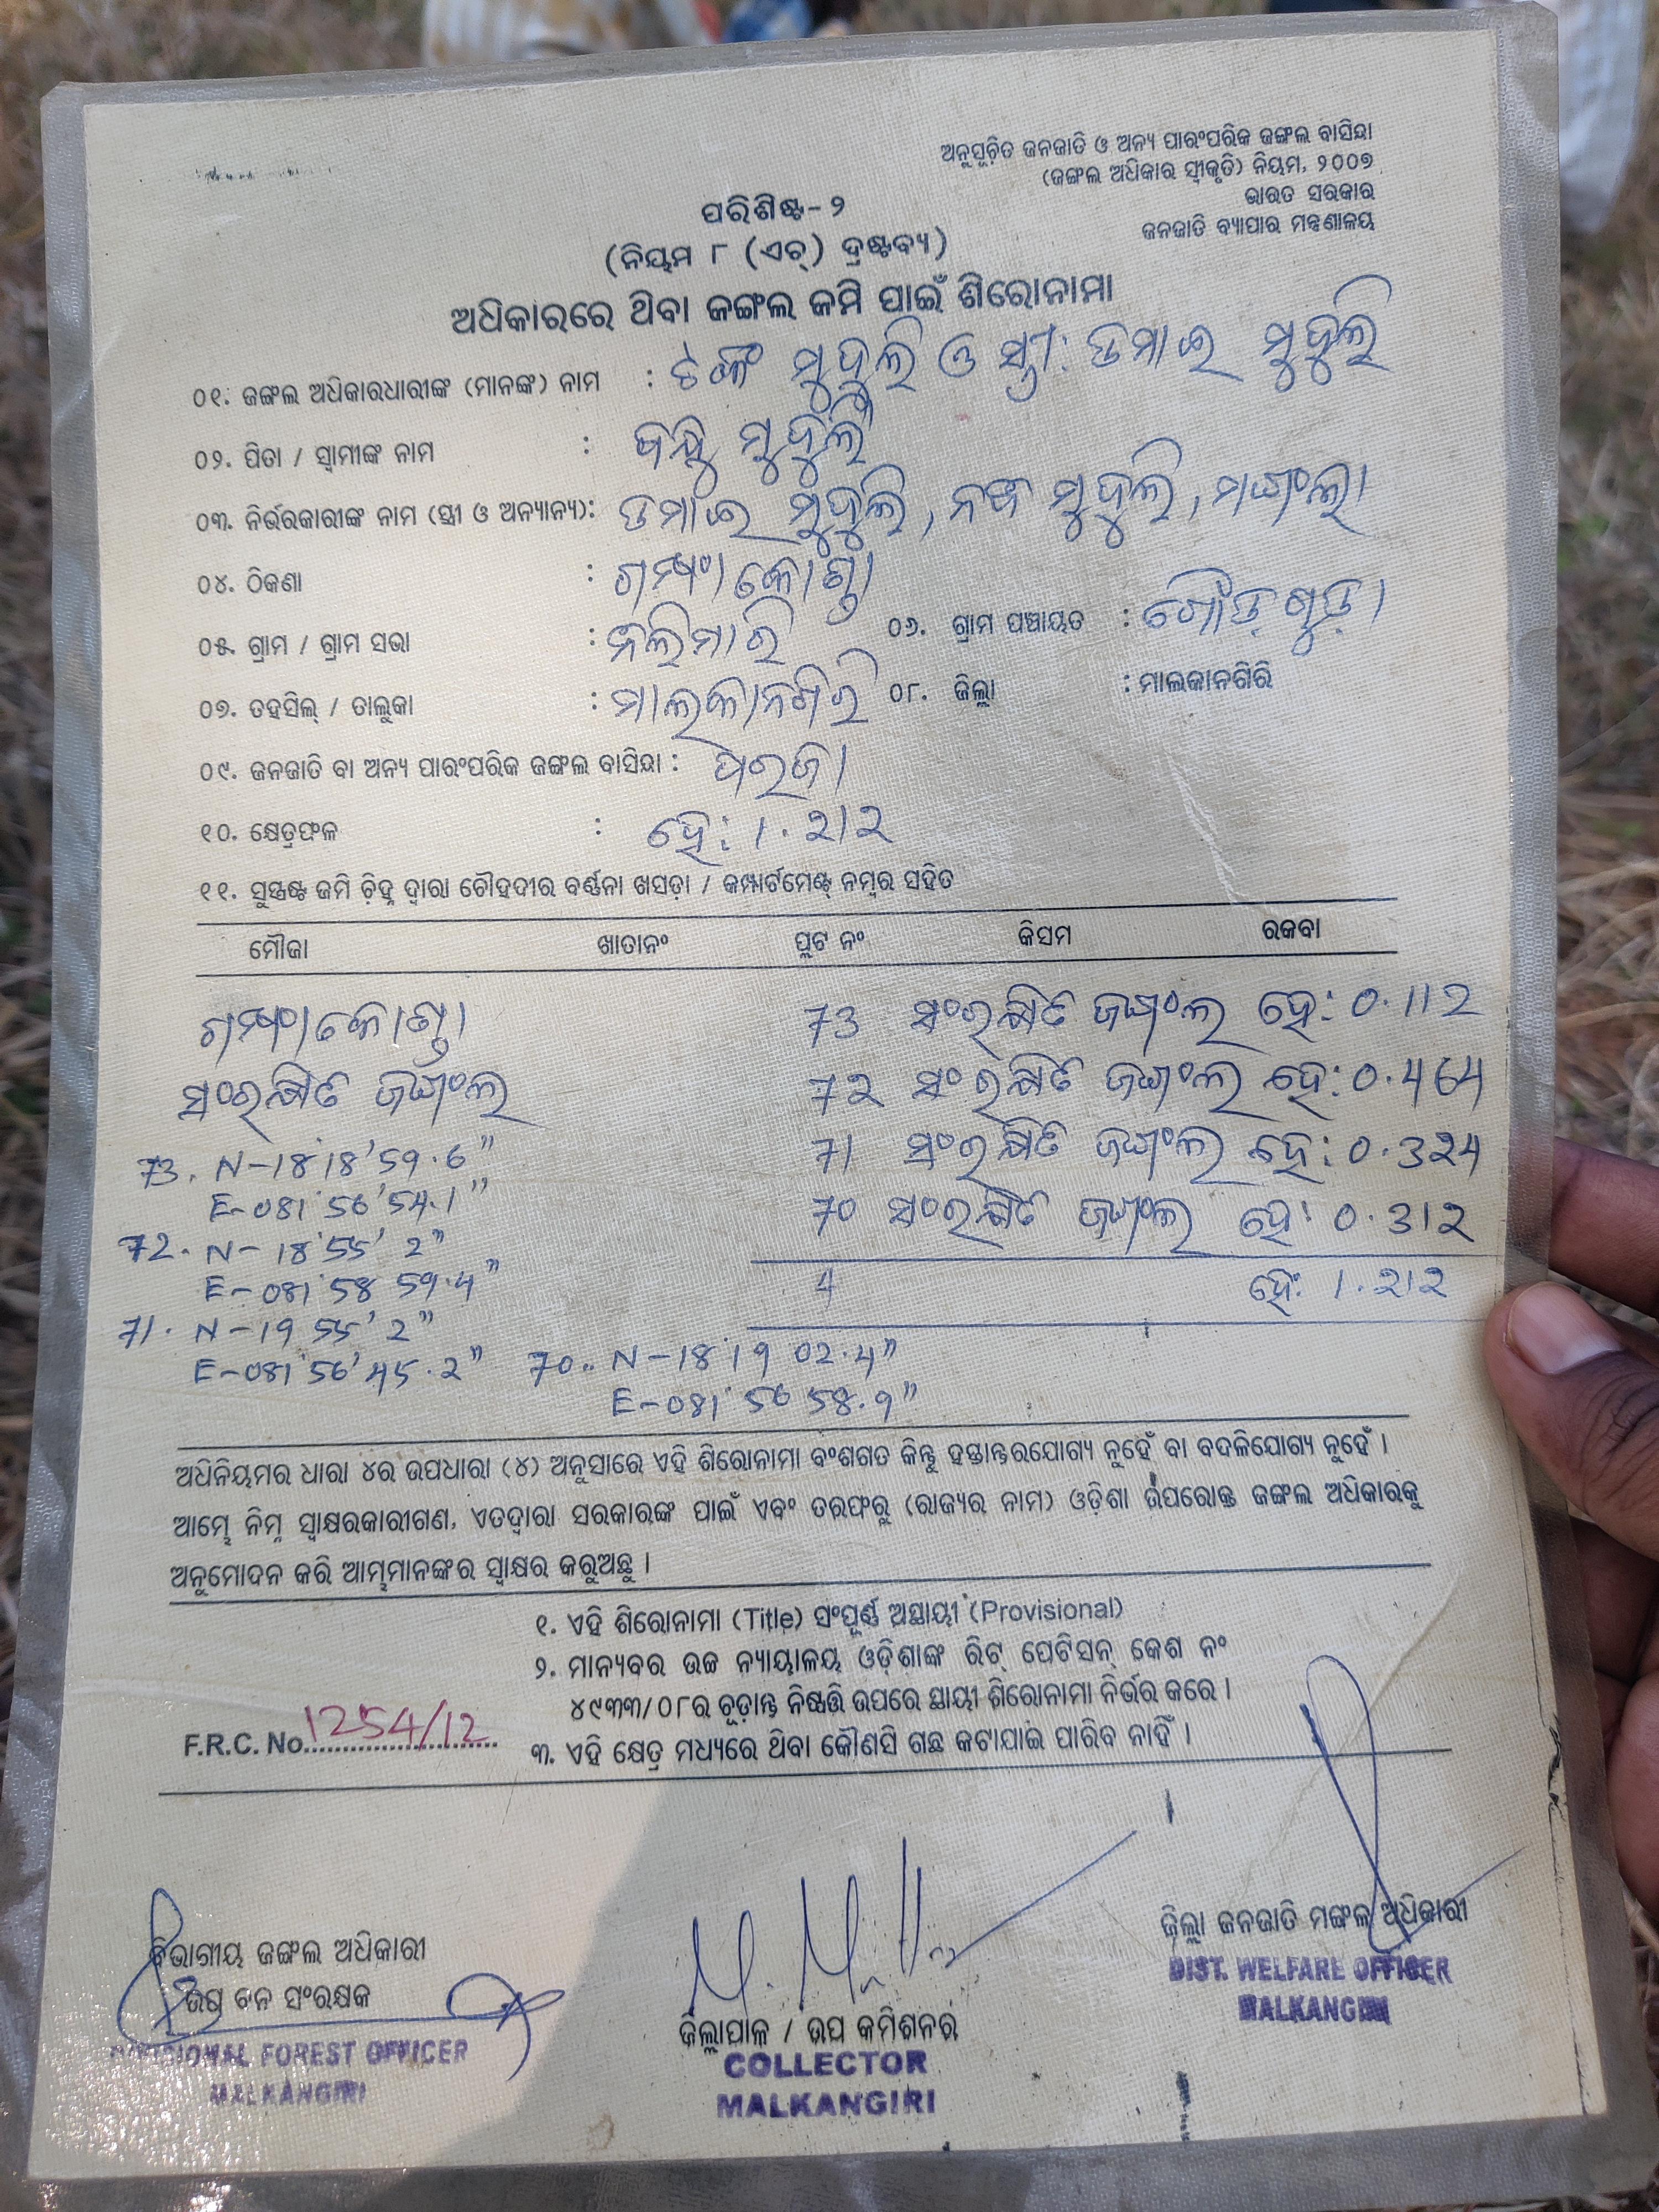 ଅନୁସୂଚିତ ଜନଜାତି ଓ ଅନ୍ୟ ପାରଂପରିକ ଜଙ୍ଗଲ ବାସିନ୍ଦା
(ଜଙ୍ଗଲ ଅଧିକାର ସ୍ୱୀକୃତି) ନିୟମ, ୨୦୦୭
ଭାରତ ସରକାର
ଜନଜାତି ବ୍ୟାପାର ମନ୍ତ୍ରଣାଳୟ
ପରିଶିଷ୍ଟ-୨
(ନିୟମ ୮ (ଏଚ୍) ଦ୍ରଷ୍ଟବ୍ୟ)
ଅଧିକାରରେ ଥିବା ଜଙ୍ଗଲ ଜମି ପାଇଁ ଶିରୋନାମା
୦୧. ଜଙ୍ଗଲ ଅଧିକାରଧାରୀଙ୍କ (ମାନଙ୍କ) ନାମ : ମୁଦୁଲି ଓ ସ୍ତ୍ରୀ: ଡମାଇ ମୁଦୁଲି
୦୨. ପିତା / ସ୍ୱାମୀଙ୍କ ନାମ : ମୁଦୁଲି
୦୩. ନିର୍ଭରକାରୀଙ୍କ ନାମ (ସ୍ତ୍ରୀ ଓ ଅନ୍ୟାନ୍ୟ): ଡମାଇ ମୁଦୁଲି, ମୁଦୁଲି,
୦୪. ଠିକଣା :
୦୫. ଗ୍ରାମ / ଗ୍ରାମ ସଭା : ୦୬. ଗ୍ରାମ ପଞ୍ଚାୟତ :
୦୭. ତହସିଲ୍ / ତାଲୁକା : ମାଲକାନଗିରି ୦୮. ଜିଲ୍ଲା : ମାଲକାନଗିରି
୦୯. ଜନଜାତି ବା ଅନ୍ୟ ପାରଂପରିକ ଜଙ୍ଗଲ ବାସିନ୍ଦା : ପରଜା
୧୦. କ୍ଷେତ୍ରଫଳ : ହେ: 1.212
୧୧. ସୁସ୍ପଷ୍ଟ ଜମି ଚିହ୍ନ ଦ୍ୱାରା ଚୌହଦୀର ବର୍ଣ୍ଣନା ଖସଡ଼ା / କମ୍ପାର୍ଟମେଣ୍ଟ୍ ନମ୍ବର ସହିତ
ମୌଜା ଖାତାନଂ ପ୍ଲଟ ନଂ କିସମ ରକବା
73 ସଂରକ୍ଷିତ ଜଙ୍ଗଲ ହେ: 0.112
ସଂରକ୍ଷିତ ଜଙ୍ଗଲ
72 ସଂରକ୍ଷିତ ଜଙ୍ଗଲ ହେ: 0.464
71 ସଂରକ୍ଷିତ ଜଙ୍ଗଲ ହେ: 0.324
70 ସଂରକ୍ଷିତ ଜଙ୍ଗଲ ହେ: 0.312
4 ହେ: 1.212
73. N-18˙18'59.6"
E-081˙56'54.1"
72. N-18˙55'2"
E-081˙58 59.4"
71. N-19 55'2"
E-081˙56'45.2"
70. N-18˙19 02.4"
E-081˙56 58.9"
ଅଧିନିୟମର ଧାରା ୪ର ଉପଧାରା (୪) ଅନୁସାରେ ଏହି ଶିରୋନାମା ବଂଶଗତ କିନ୍ତୁ ହସ୍ତାନ୍ତରଯୋଗ୍ୟ ନୁହେଁ ବା ବଦଳିଯୋଗ୍ୟ ନୁହେଁ ।
ଆମ୍ଭେ ନିମ୍ନ ସ୍ୱାକ୍ଷରକାରୀଗଣ, ଏତଦ୍ୱାରା ସରକାରଙ୍କ ପାଇଁ ଏବଂ ତରଫରୁ (ରାଜ୍ୟର ନାମ) ଓଡ଼ିଶା ଉପରୋକ୍ତ ଜଙ୍ଗଲ ଅଧିକାରକୁ
ଅନୁମୋଦନ କରି ଆମ୍ଭମାନଙ୍କର ସ୍ୱାକ୍ଷର କରୁଅଛୁ ।
୧. ଏହି ଶିରୋନାମା (Title) ସଂପୂର୍ଣ୍ଣ ଅସ୍ଥାୟୀ (Provisional)
୨. ମାନ୍ୟବର ଉଚ୍ଚ ନ୍ୟାୟାଳୟ ଓଡ଼ିଶାଙ୍କ ରିଟ୍ ପେଟିସନ୍ କେଶ ନଂ
୪୯୩୩/୦୮ର ଚୂଡ଼ାନ୍ତ ନିଷ୍ପତ୍ତି ଉପରେ ସ୍ଥାୟୀ ଶିରୋନାମା ନିର୍ଭର କରେ ।
F.R.C. No. 1254/12
୩. ଏହି କ୍ଷେତ୍ର ମଧ୍ୟରେ ଥିବା କୌଣସି ଗଛ କଟାଯାଇ ପାରିବ ନାହିଁ ।
ବିଭାଗୀୟ ଜଙ୍ଗଲ ଅଧିକାରୀ
ଉପ ବନ ସଂରକ୍ଷକ
DIVISIONAL FOREST OFFICER
MALKANGIRI
ଜିଲ୍ଲାପାଳ / ଉପ କମିଶନର
COLLECTOR
MALKANGIRI
ଜିଲ୍ଲା ଜନଜାତି ମଙ୍ଗଳ ଅଧିକାରୀ
DIST. WELFARE OFFICER
MALKANGIRI